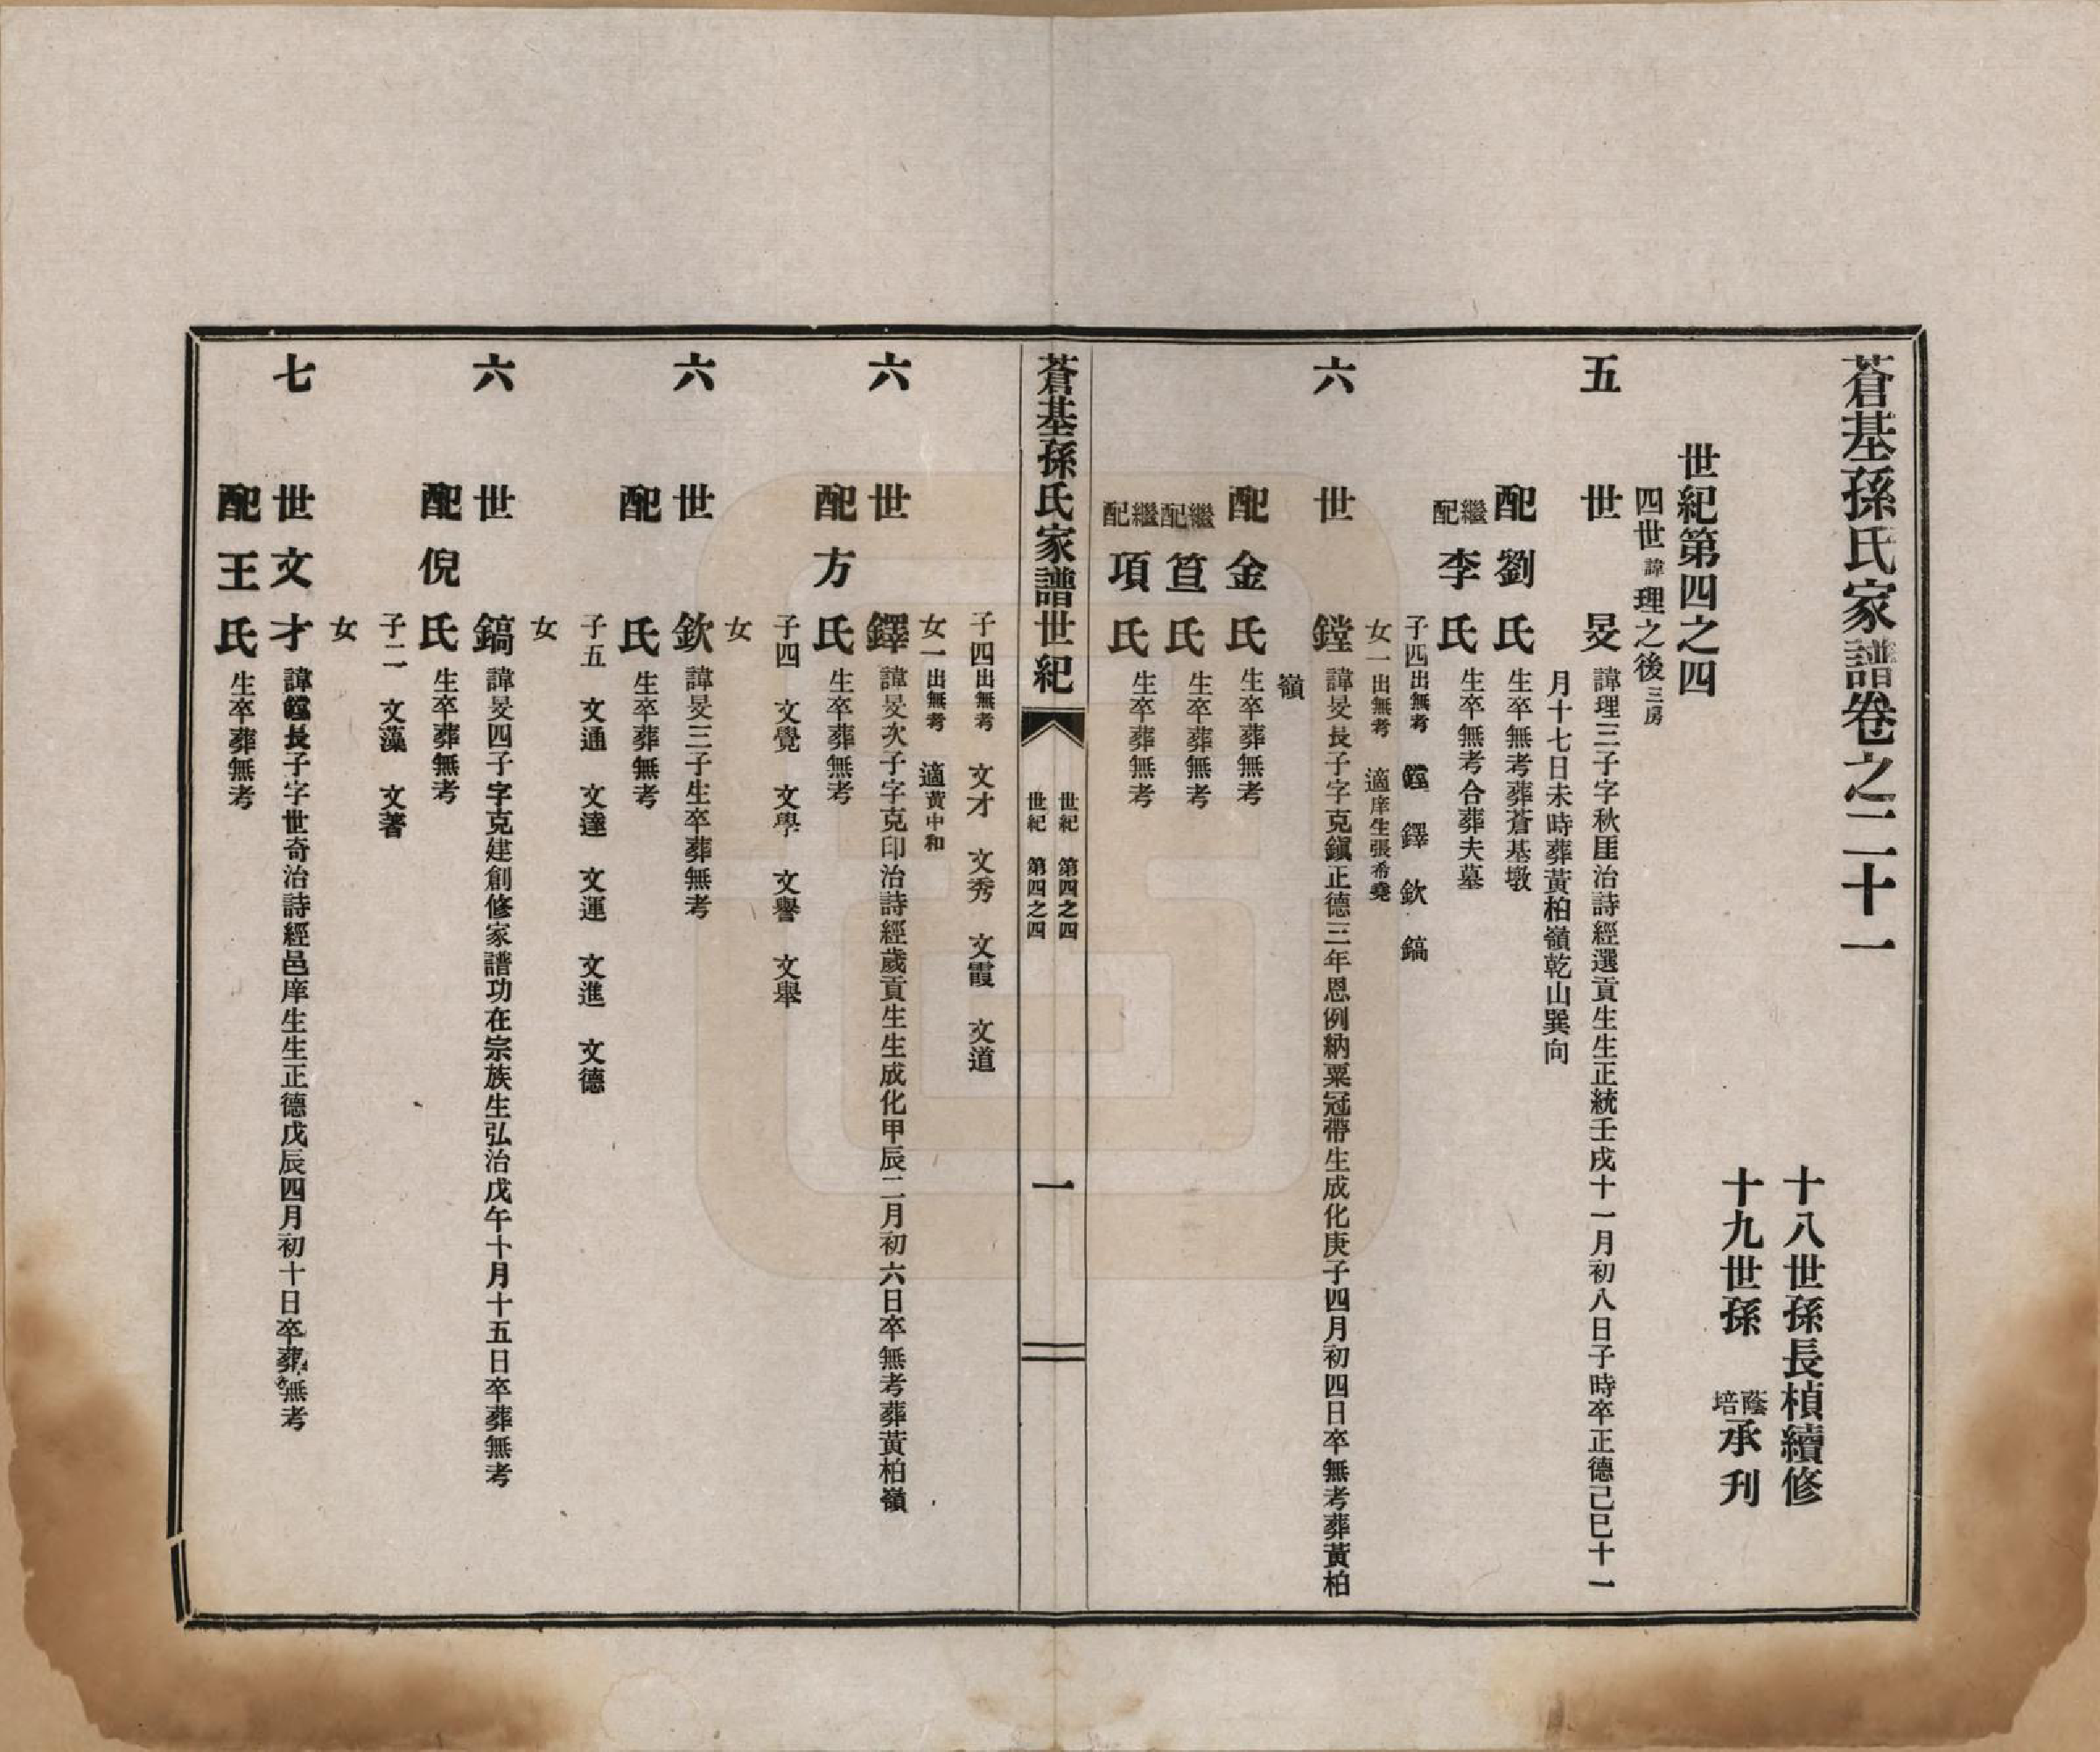 蒼基孫氏家譜卷之二十一
十八世孫長楨續修
十九世孫 蔭培 承刋
世紀第四之四
四世諱理之後三房
五世旻 諱理三子字秋厓治詩經選貢生生正統壬戌十一月初八日子時卒正德己巳十一
月十七日未時葬黃柏嶺乾山巽向
配劉氏 生卒無考葬蒼基墩
繼配李氏 生卒無考合葬夫墓
子四出無考 鏜 鐸 欽 鎬
女一出無考 適庠生張希堯
六世鏜 諱旻長子字克鎭正德三年恩例納粟冠帶生成化庚子四月初四日卒無考葬黃柏
嶺
配金氏 生卒葬無考
繼配笪氏 生卒葬無考
繼配項氏 生卒葬無考
蒼基孫氏家譜世紀 世紀 第四之四 世紀 第四之四 一
子四出無考 文才 文秀 文霞 文道
女一出無考 適黃中和
六世鐸 諱旻次子字克印治詩經歲貢生生成化甲辰二月初六日卒無考葬黃柏嶺
配方氏 生卒葬無考
子四 文覺 文學 文譽 文舉
女
六世欽 諱旻三子生卒葬無考
配 氏 生卒葬無考
子五 文通 文達 文運 文進 文德
女
六世鎬 諱旻四子字克建創修家譜功在宗族生弘治戊午十月十五日卒葬無考
配倪氏 生卒葬無考
子二 文藻 文著
女
七世文才 諱鏜長子字世奇治詩經邑庠生生正德戊辰四月初十日卒葬無考
配王氏 生卒葬無考